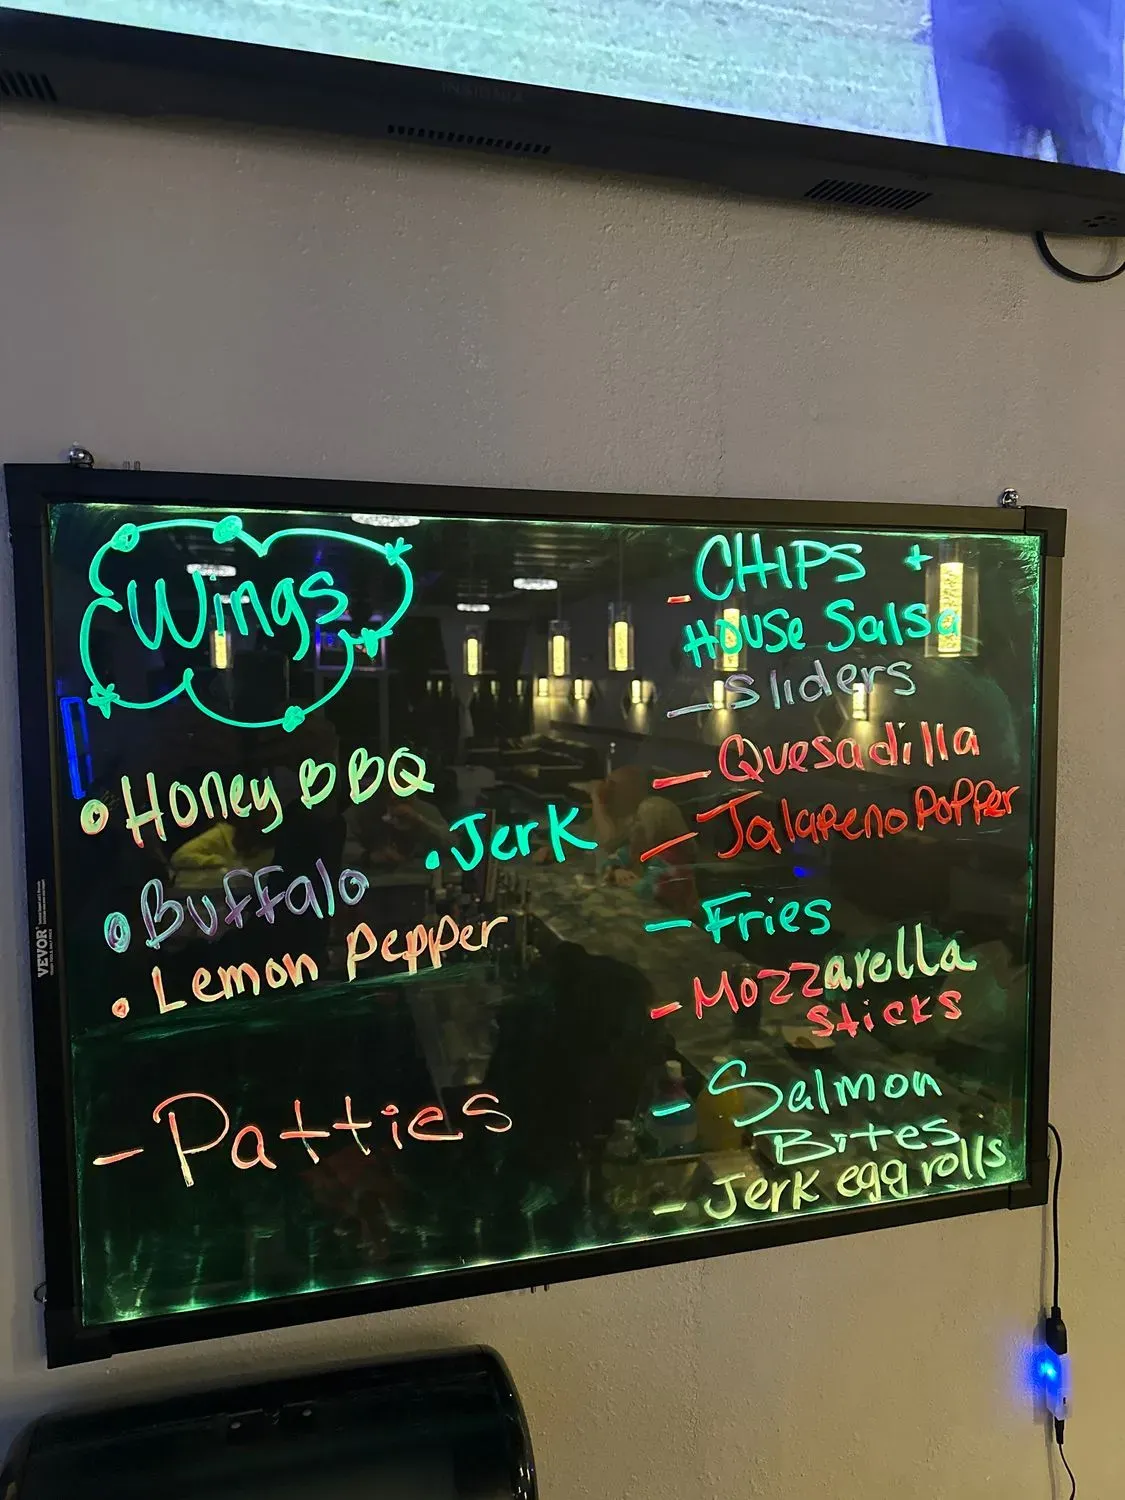 INSIGNIA
Wings
• Honey BBQ
• Jerk
• Buffalo
• Lemon Pepper
- Patties
- CHIPS +
House Salsa
- Sliders
- Quesadilla
- Jalapeno Popper
- Fries
- Mozzarella
sticks
- Salmon
Bites
- Jerk egg rolls
VEVOR